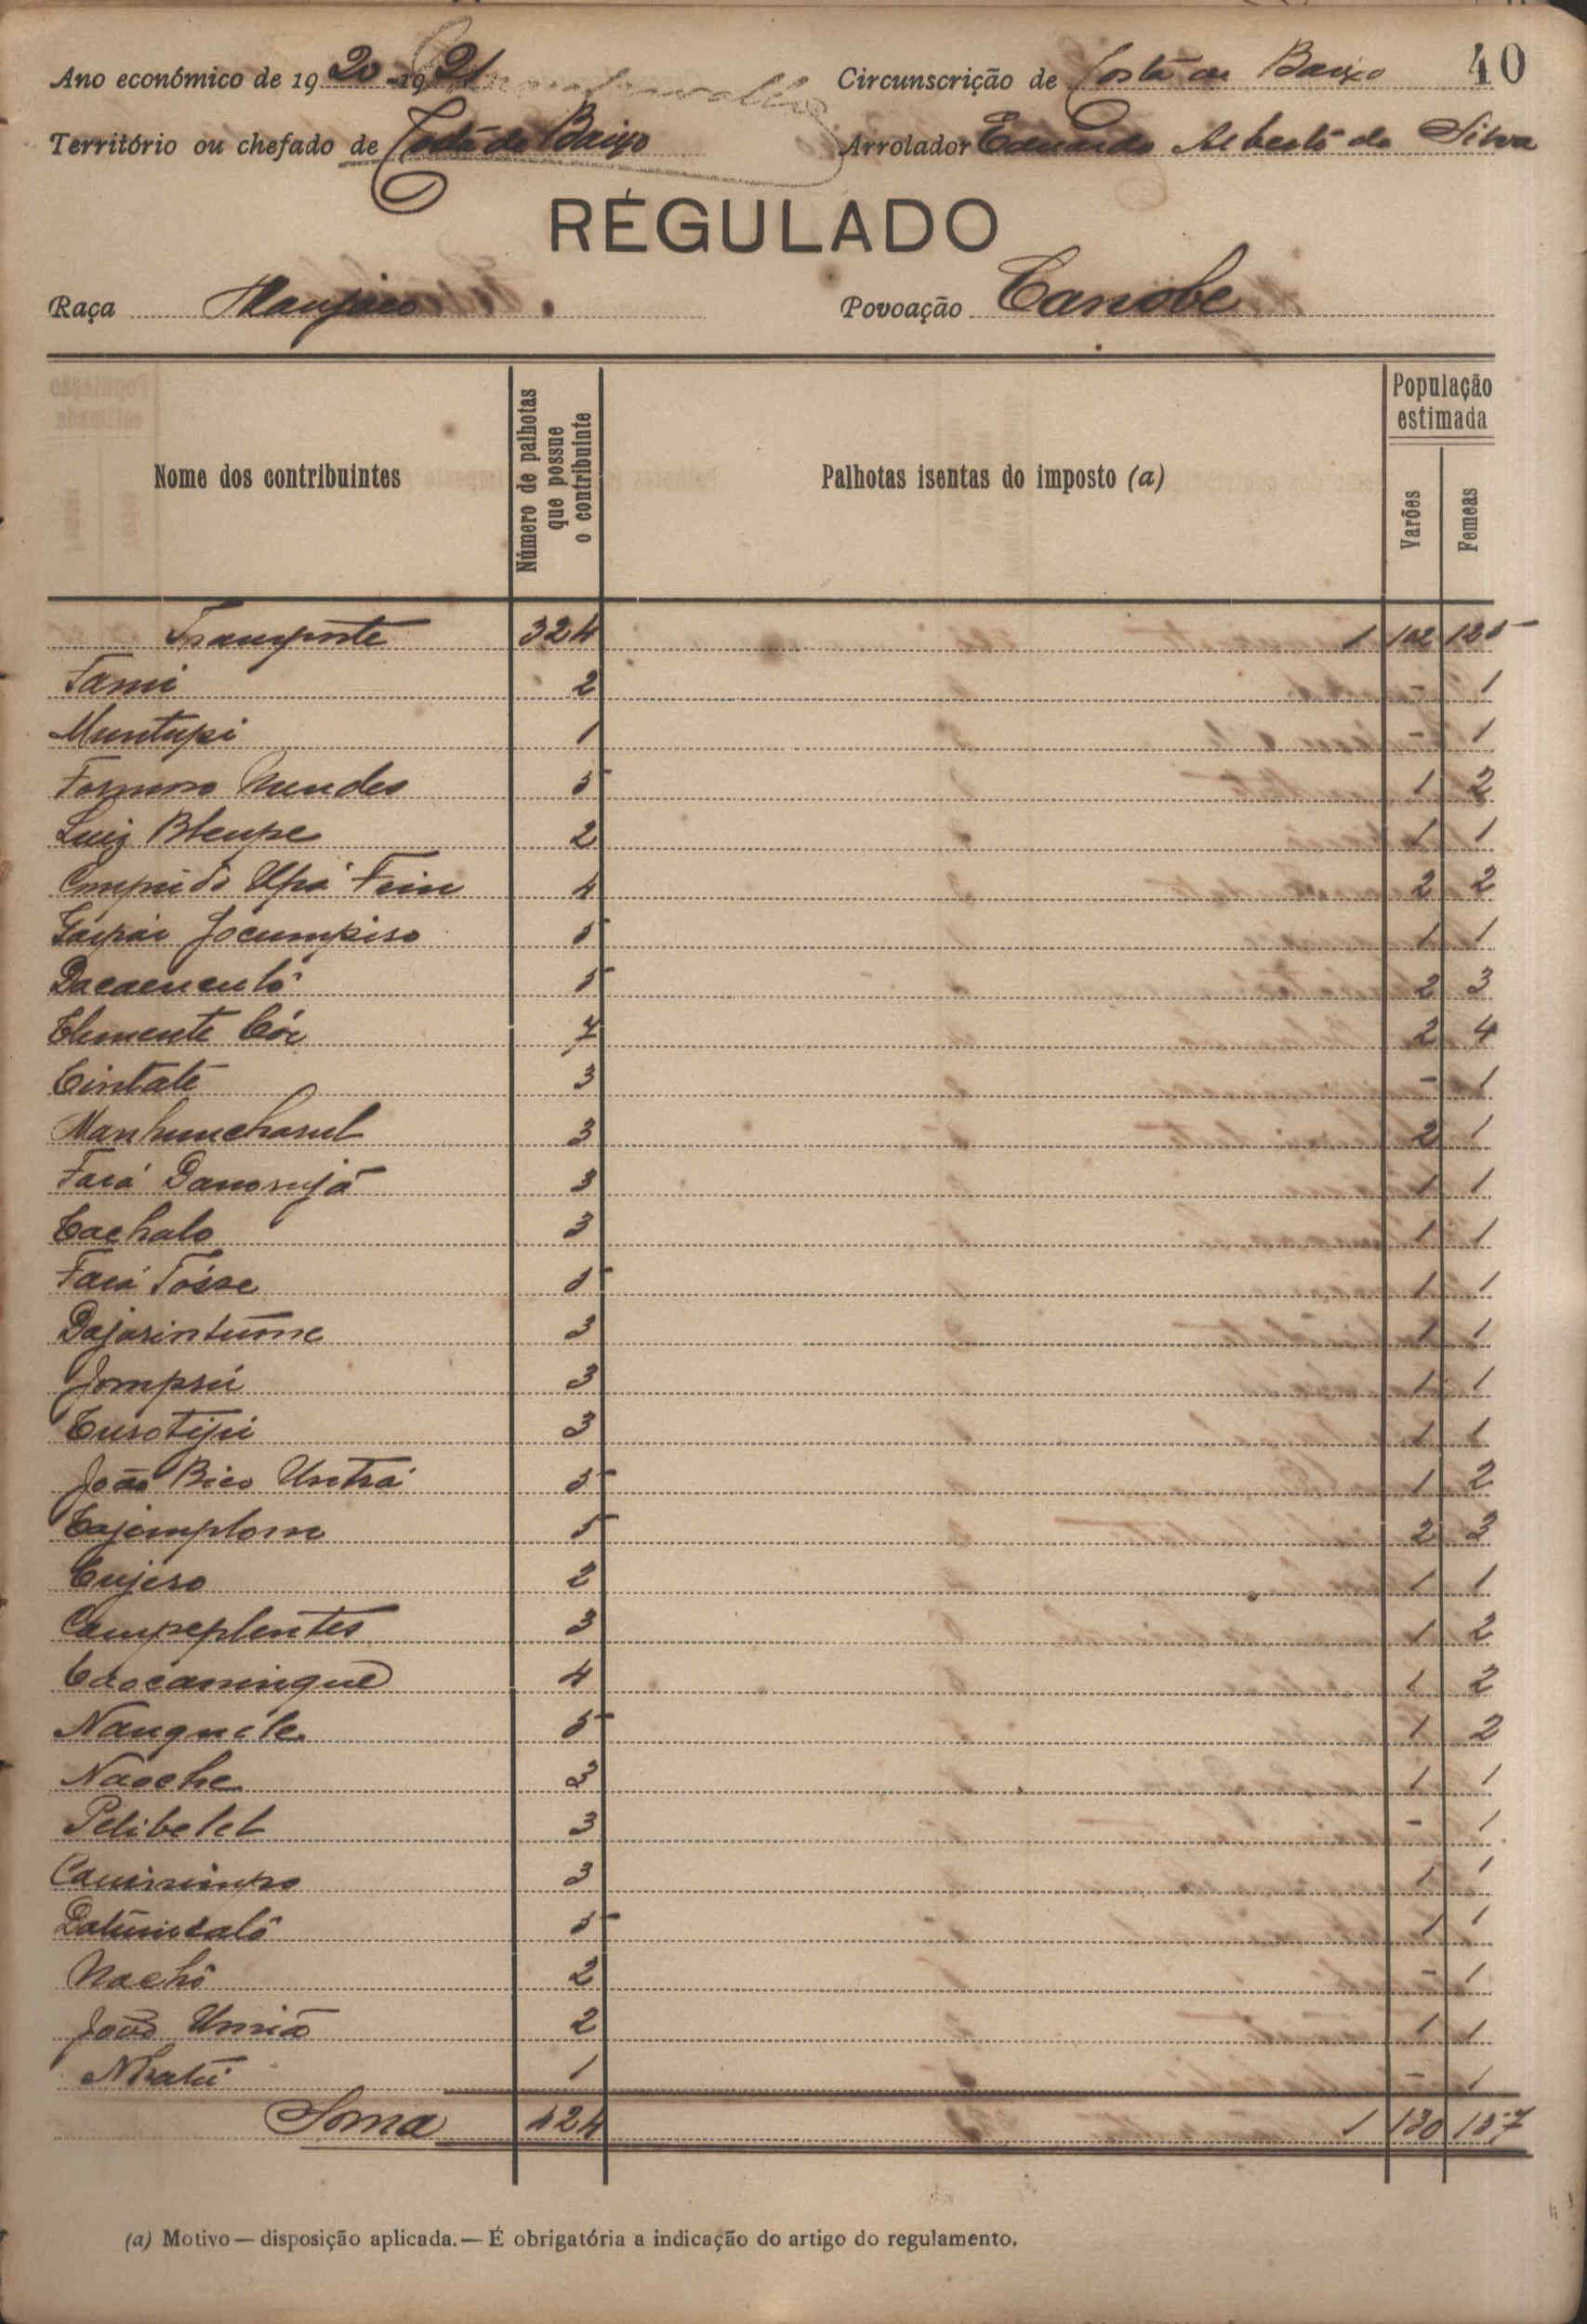 40
Ano económico de 1920-1921 Circunscrição de Costa de Baixo
Território ou chefado de Costa de Baixo Arrolador Eduardo Alberto da Silva
RÉGULADO
Raça Manjaco Povoação Canobe
Nome dos contribuintes Número de palhotas que possue o contribuinte Palhotas isentas do imposto (a) População estimada
Varões Femeas
Transporte 324 1 102 125
Tami 2 - 1
Muntupi 1 - 1
Mendes 5 1 2
Luiz 2 1 1
4 2 2
Gaspar Jocumpiso 5 1 1
5 2 3
Clemente Cór 7 2 4
Cintate 3 - 1
Manhumchasul 3 2 1
3 1 1
Cachalo 3 1 1
Tósse 5 1 1
Dajasintúme 3 1 1
3 1 1
3 1 1
João Bico Untrá 5 1 2
Cajemplom 5 2 3
Cujeso 2 1 1
Campeplentes 3 1 2
4 1 2
Nanguile 5 1 2
Naoche 3 1 1
Pelibelet 3 - 1
3 1 1
5 1 1
Nachô 2 - 1
João 2 1 1
1 - 1
Soma 424 1 130 157
(a) Motivo — disposição aplicada. — É obrigatória a indicação do artigo do regulamento.